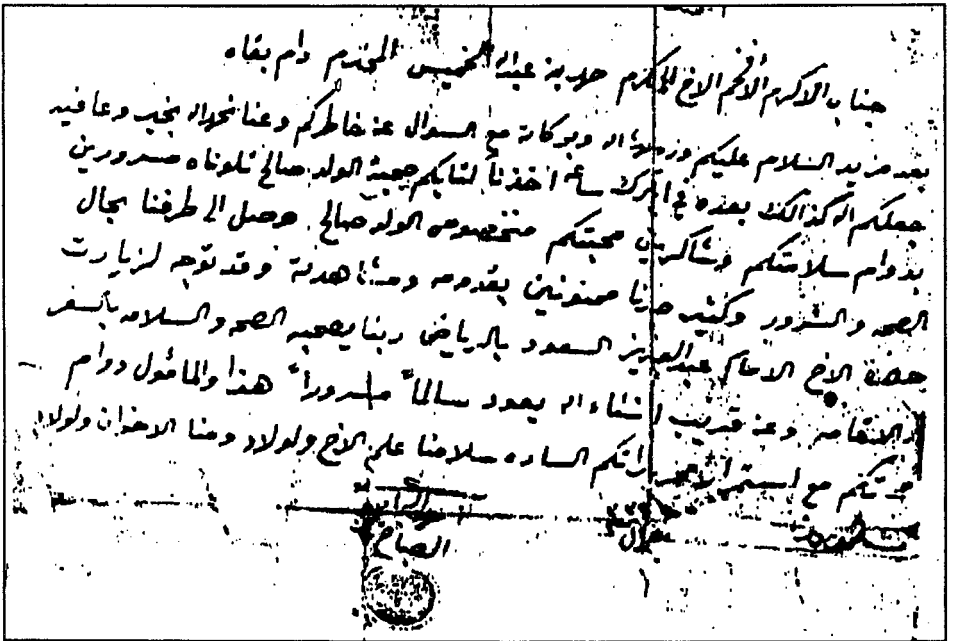 جناب الاكرم الأفخم الاخ المكرم حمد بن عبدالله الخميس المحترم دام بقاه
بعد مزيد السلام عليكم ورحمة الله وبركاته مع السؤال عن خاطركم وعنا نحمد الله بخير وعافيه
جعلكم الله كذالك بعده في ابرك ساعه اخذنا كتابكم صحبة الولد صالح تلوناه مسرورين
بدوام سلامتكم وشاكرين محبتكم منخصوص الولد صالح وصل الى طرفنا بحال
الصحه والسرور وكثير صرنا ممنونين بقدومه ومشاهدته وقد توجه لزيارت
حضرة الاخ الامام عبدالعزيز السعود بالرياض ربنا يصحبه الصحه والسلامه بالسفر
والاقامه وعن قريب انشاء الله يعود سالماً مسروراً هذا والمأمول دوام
مع استمرار الساره سلامنا على الاخ ولولاد ومنا الاخوان ولولاد
الصباح